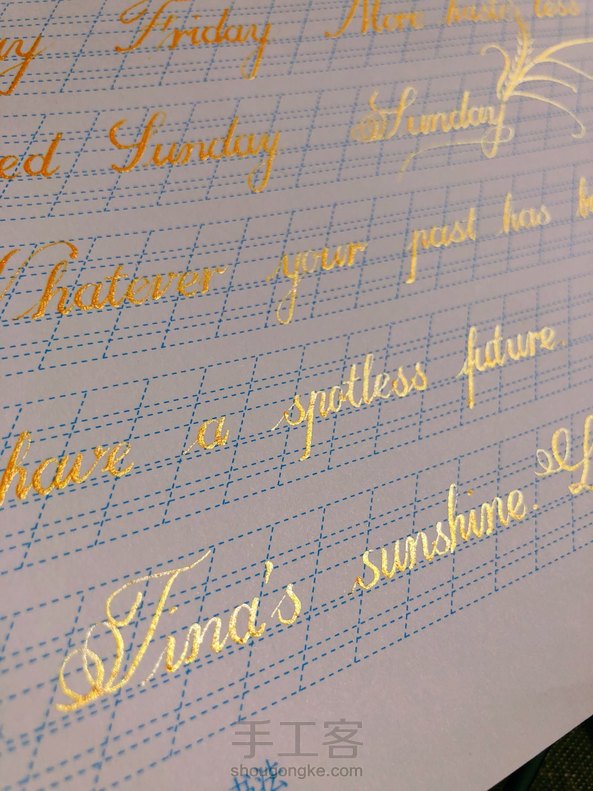 Friday More haste, less
Sunday Sunday
Whatever your past has
have a spotless future.
Tina's sunshine.
手工客
shougongke.com